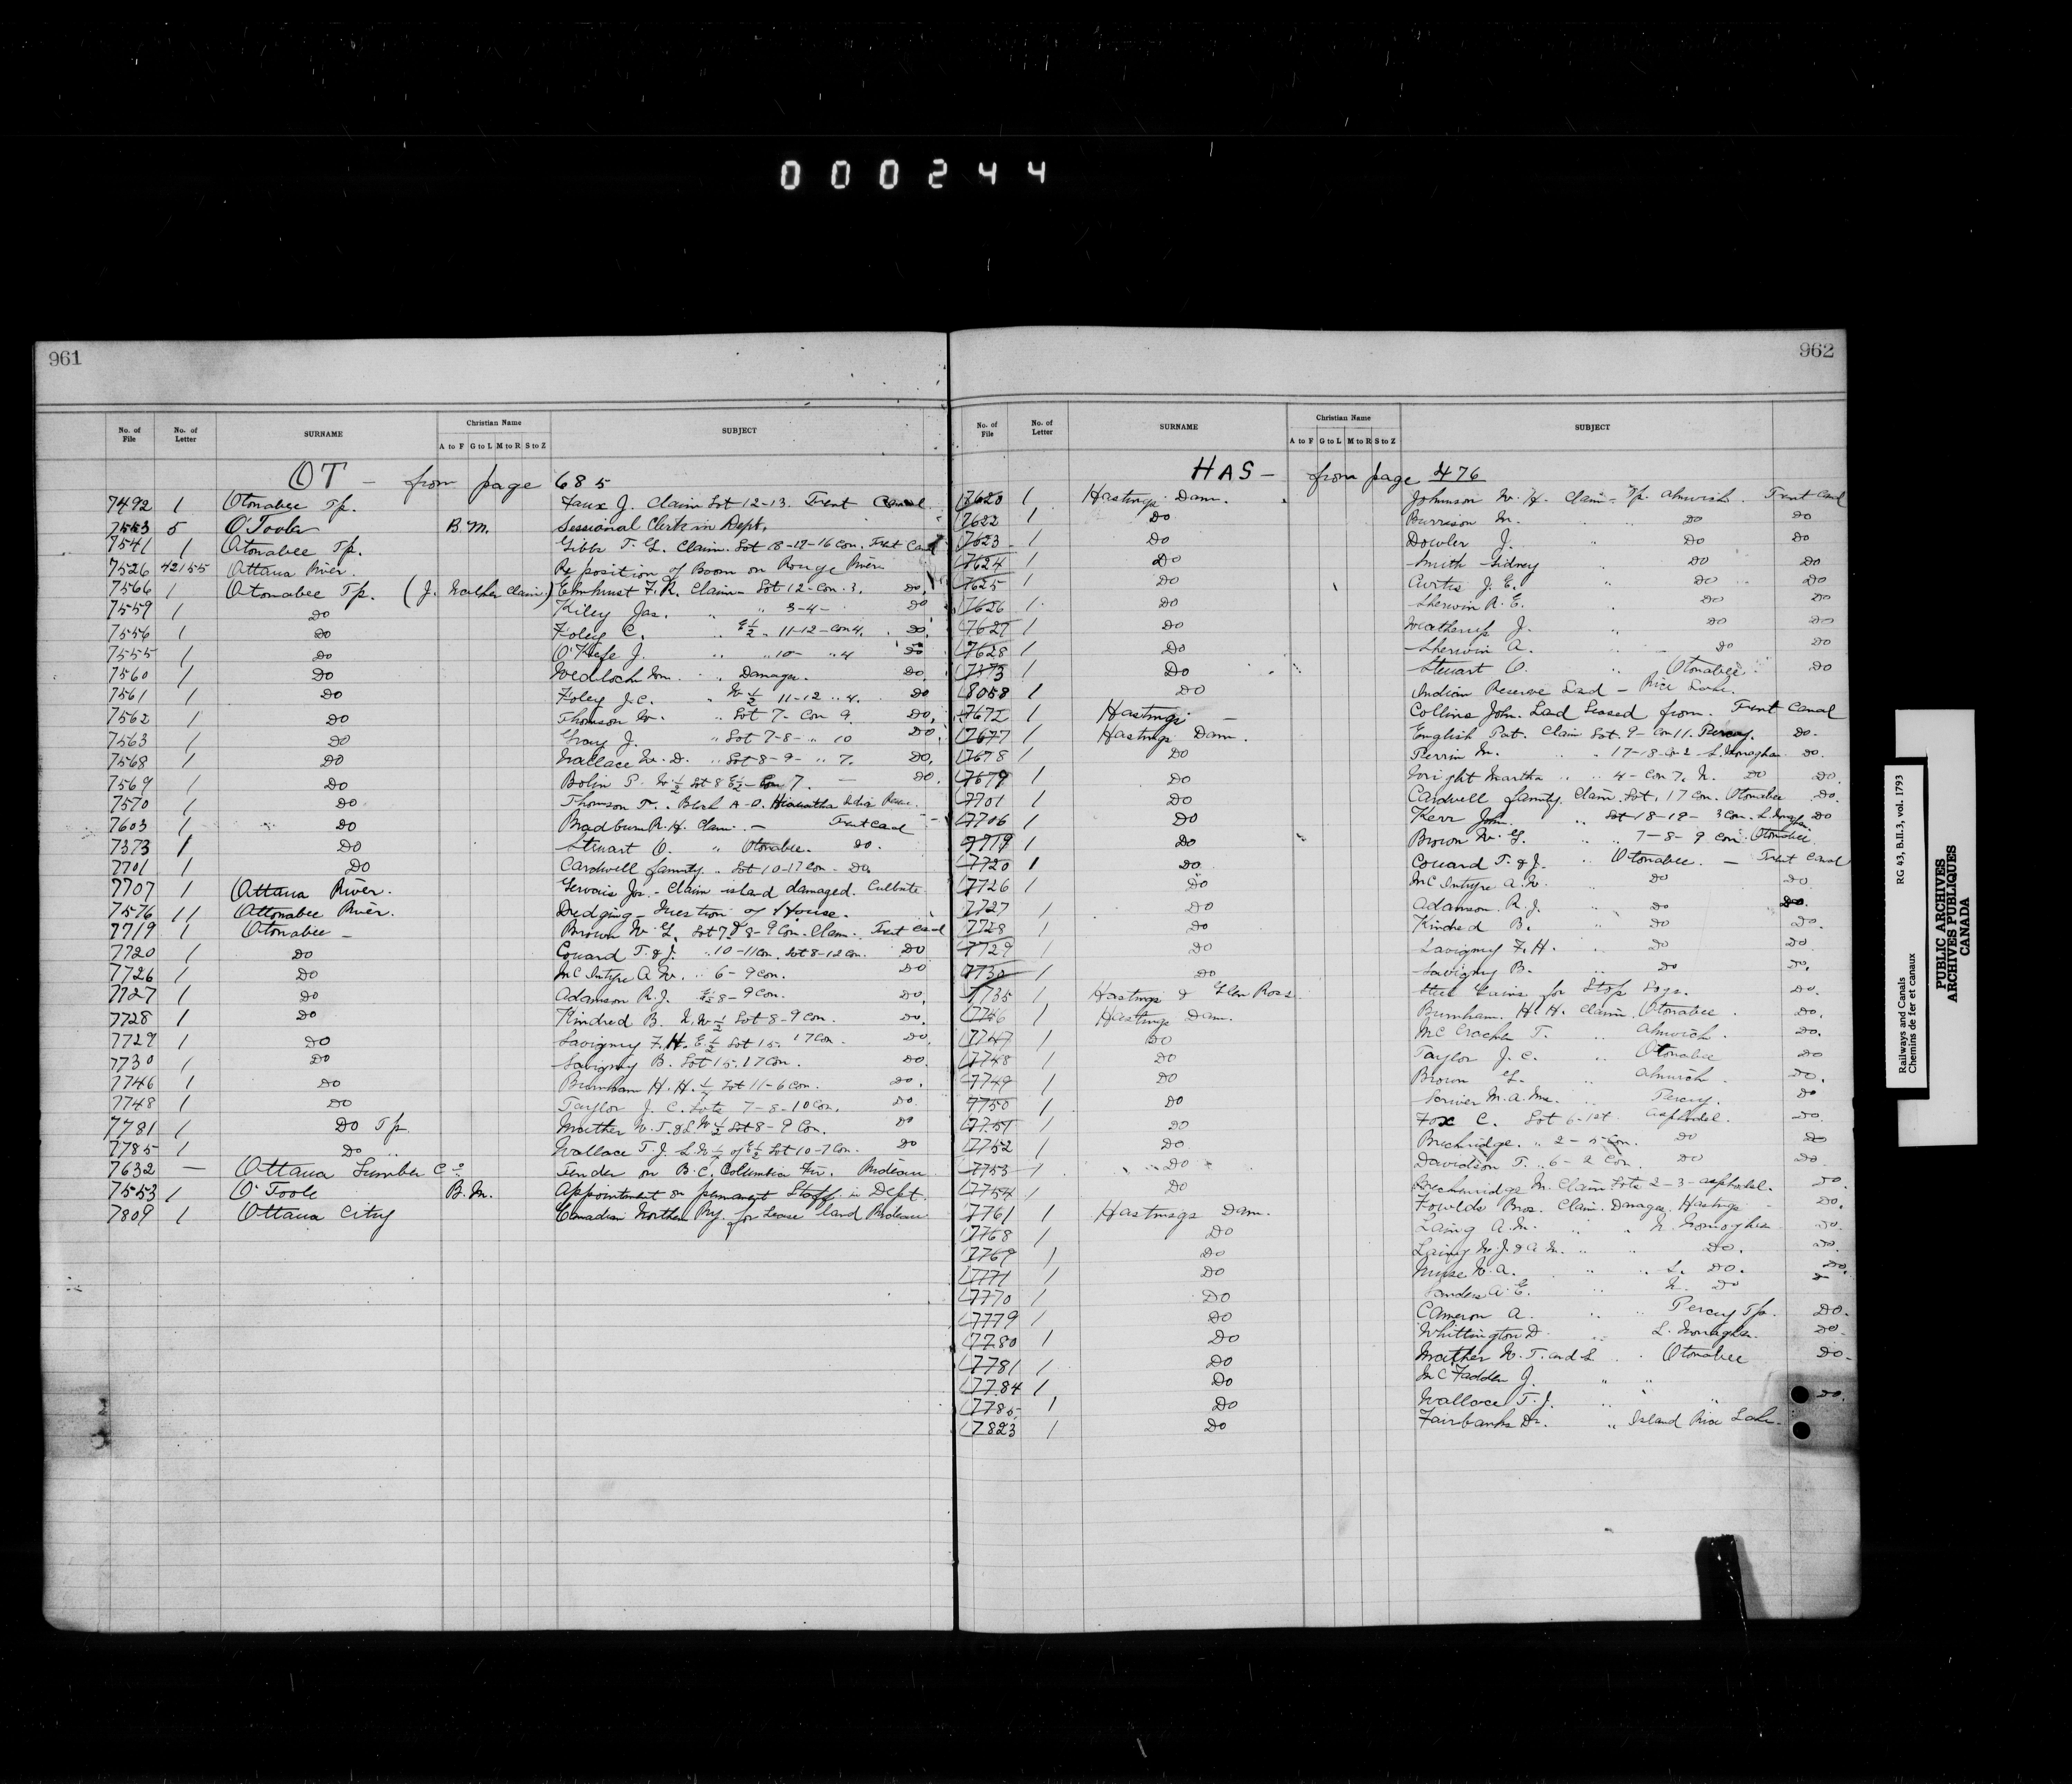 000244
961
No. of File No. of Letter SURNAME Christian Name A to F G to L M to R S to Z SUBJECT
OT - from page 685
7492 1 Otonabee Tp. Faux J. Claim Lot 12-13. Trent Canal
7553 5 O'Toole B.M. Sessional Clerk in Dept.
7541 1 Otonabee Tp. Gibbs T. G. Claim. Lot 18-17-16 Con. Trent Canal
7526 42155 Ottawa River. Re position of Boom on Rouge River
7566 1 Otonabee Tp. (J. Walker Claim) Elmhurst F.R. Claim - Lot 12-Con. 3. Do.
7559 1 Do Kiley Jas. " " 3-4- Do
7556 1 Do Foley C. " E½ " 11-12-Con 4. Do.
7555 1 Do O'Keefe J. " " 10 - " 4 Do
7560 1 Do Wm. " Damages. Do.
7561 1 Do Foley J.C. " W ½ 11-12 " 4. Do
7562 1 Do Thomson W. " Lot 7- Con 9. Do.
7563 1 Do Gray J. " Lot 7-8- " 10 Do.
7568 1 Do Wallace W. D. " Lot 8-9- " 7. Do.
7569 1 Do Bolin P. W ½ Lot 8 E ½ - Con 7. - Do.
7570 1 Do Thomson T. " Block A-O. Hiawatha Indian Reserve.
7603 1 Do Bradburn R.H. Claim. - Trent Canal
7373 1 Do Stewart O. " Otonabee. Do.
7701 1 Do Cardwell family. " Lot 10-17 Con - Do.
7707 1 Ottawa River. Gervais Jos. - Claim island damaged. Culbute
7576 11 Ottonabee River. Dredging - Question of House.
7719 1 Otonabee - Brown W. G. Lot 7 & 8-9 Con. Claim. Trent Canal
7720 1 Do Couard T. & J. " 10-11 Con. Lot 8-12 Con. Do
7726 1 Do McIntyre A. W. " 6-9 Con. Do
7727 1 Do Adamson R.J. E ½ 8-9 Con. Do.
7728 1 Do Kindred B. N.W ½ Lot 8-9 Con. Do.
7729 1 Do Savigny F.H. E ½ Lot 15. 17 Con. Do.
7730 1 Do Savigny B. Lot 15. 17 Con. Do.
7746 1 Do Burnham H. H. Lot 11-6 Con. Do.
7748 1 Do Taylor J. C. Lots 7-8-10 Con. Do.
7781 1 Do Tp. Mather W. T. & L. W ½ Lot 8-9 Con. Do
7785 1 Do " Wallace T. J. S.W ½ of E ½ Lot 10-7 Con. Do
7632 - Ottawa Lumber Co. Tender on B.C. Columbia Fir. Rideau
7553 1 O'Toole B.M. Appointment on permanent Staff in Dept.
7809 1 Ottawa City Canadian Northern Ry. for Lease land Rideau
962
No. of File No. of Letter SURNAME Christian Name A to F G to L M to R S to Z SUBJECT
HAS - from page 476
7620 1 Hastings Dam. Johnson W. H. Claim - Tp. Alnwick. Trent Canal
7622 1 Do Burrison M. " Do Do
7623 1 Do Dowler J. " Do Do
7624 1 Do Smith Sidney " Do Do
7625 1 Do Curtis J. E. " Do Do
7626 1 Do Sherwin R. E. " Do Do
7627 1 Do Weatherup J. " Do Do
7628 1 Do Sherwin A. " Do Do
7373 1 Do Stewart O. " Otonabee. Do
8058 1 Do Indian Reserve Land - Rice Lake.
7672 1 Hastings - Collins John. Land Leased from. Trent Canal
7677 1 Hastings Dam. English Pat. Claim Lot. 9-Con 11. Percy. Do.
7678 1 Do Perrin M. " " 17-18-Con 2 - S. Monaghan Do.
7679 1 Do Wright Martha " " 4- Con 7. N. Do Do.
7701 1 Do Cardwell family. Claim. Lot. 17 Con. Otonabee Do.
7706 1 Do Kerr John. " Lot 18-19- 3 Con. S. Monaghan Do
7719 1 Do Brown W. G. " " 7-8-9 Con. Otonabee
7720 1 Do Couard T. & J. " Otonabee. - Trent Canal
7726 1 Do McIntyre A. W. " Do Do.
7727 1 Do Adamson R. J. " Do Do.
7728 1 Do Kindred B. " Do Do.
7729 1 Do Savigny F. H. " Do Do.
7730 1 Do Savigny B. " Do Do.
7735 1 Hastings & Glen Ross. Steel for Stop Logs. Do.
7746 1 Hastings Dam. Burnham. H. H. Claim. Otonabee. Do.
7747 1 Do McCracken T. " Alnwick. Do.
7748 1 Do Taylor J. C. " Otonabee Do
7749 1 Do Brown G. " Alnwick. Do.
7750 1 Do Scriver M. A. Mrs. " Percy. Do
7751 1 Do Fox C. Lot 6-1st Asphodel. Do.
7752 1 Do Breckridge. " 2-5 Con. Do Do
7753 1 Do Davidson T. " 6-2 Con. Do Do.
7754 1 Do Breckenridge M. Claim Lots 2-3- Asphodel. Do.
7761 1 Hastings Dam. Fowlds Bros. Claim. Damages. Hastings - Do.
7768 1 Do Laing A. M. " " N. Monaghan Do.
7769 1 Do Laing W. J. & A. M. " " Do. Do.
7771 1 Do W. A. " " S. Do. Do.
7770 1 Do Sanders A. E. " N. Do Do
7779 1 Do Cameron A. " " Percy Tp. Do.
7780 1 Do Whittington D. " S. Monaghan. Do.
7781 1 Do Mather W. T. and L. " Otonabee Do.
7784 1 Do McFadden J. " "
7785 1 Do Wallace T. J. " " Do.
7823 1 Do Fairbanks Dr. " Island Rice Lake.
Railways and Canals RG 43, B.II.3, vol. 1793
Chemins de fer et canaux
PUBLIC ARCHIVES
ARCHIVES PUBLIQUES
CANADA